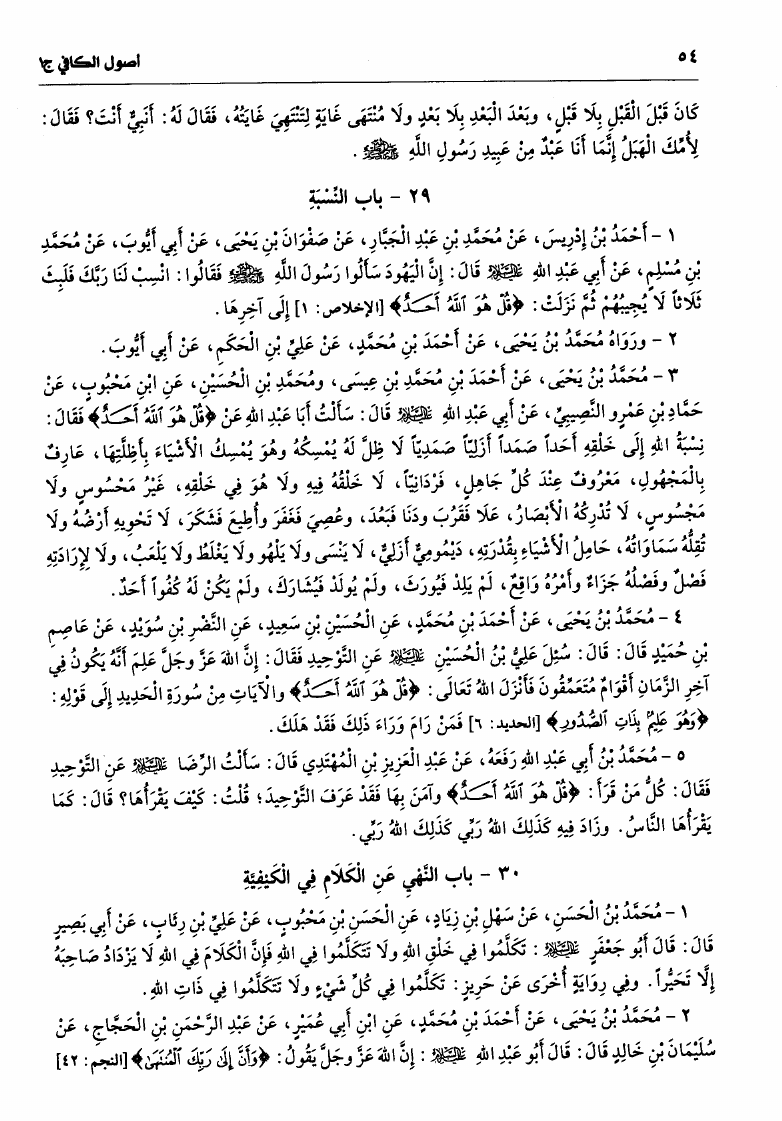 ٥٤
أصول الكافي ج١
كَانَ قَبْلَ الْقَبْلِ بِلَا قَبْلٍ، وبَعْدَ الْبَعْدِ بِلَا بَعْدٍ ولَا مُنْتَهَى غَايَةٍ لِتَنْتَهِيَ غَايَتُهُ، فَقَالَ لَهُ: أَنَبِيٌّ أَنْتَ؟ فَقَالَ:
لِأُمِّكَ الْهَبَلُ إِنَّمَا أَنَا عَبْدٌ مِنْ عَبِيدِ رَسُولِ اللَّهِ ﷺ.
٢٩ - باب النِّسْبَةِ
١ - أَحْمَدُ بْنُ إِدْرِيسَ، عَنْ مُحَمَّدِ بْنِ عَبْدِ الْجَبَّارِ، عَنْ صَفْوَانَ بْنِ يَحْيَى، عَنْ أَبِي أَيُّوبَ، عَنْ مُحَمَّدِ
بْنِ مُسْلِمٍ، عَنْ أَبِي عَبْدِ اللهِ عليه السلام قَالَ: إِنَّ الْيَهُودَ سَأَلُوا رَسُولَ اللَّهِ ﷺ فَقَالُوا: انْسِبْ لَنَا رَبَّكَ فَلَبِثَ
ثَلَاثاً لَا يُجِيبُهُمْ ثُمَّ نَزَلَتْ: ﴿قُلْ هُوَ ٱللَّهُ أَحَـدٌ﴾ [الإخلاص: ١] إِلَى آخِرِهَا.
٢ - ورَوَاهُ مُحَمَّدُ بْنُ يَحْيَى، عَنْ أَحْمَدَ بْنِ مُحَمَّدٍ، عَنْ عَلِيِّ بْنِ الْحَكَمِ، عَنْ أَبِي أَيُّوبَ.
٣ - مُحَمَّدُ بْنُ يَحْيَى، عَنْ أَحْمَدَ بْنِ مُحَمَّدِ بْنِ عِيسَى، ومُحَمَّدِ بْنِ الْحُسَيْنِ، عَنِ ابْنِ مَحْبُوبٍ، عَنْ
حَمَّادِ بْنِ عَمْرٍو النَّصِيبِيِّ، عَنْ أَبِي عَبْدِ اللهِ عليه السلام قَالَ: سَأَلْتُ أَبَا عَبْدِ اللهِ عَنْ ﴿قُلْ هُوَ ٱللَّهُ أَحَـدٌ﴾ فَقَالَ:
نِسْبَةُ اللهِ إِلَى خَلْقِهِ أَحَداً صَمَداً أَزَلِيّاً صَمَدِيّاً لَا ظِلَّ لَهُ يُمْسِكُهُ وهُوَ يُمْسِكُ الْأَشْيَاءَ بِأَظِلَّتِهَا، عَارِفٌ
بِالْمَجْهُولِ، مَعْرُوفٌ عِنْدَ كُلِّ جَاهِلٍ، فَرْدَانِيّاً، لَا خَلْقُهُ فِيهِ ولَا هُوَ فِي خَلْقِهِ، غَيْرُ مَحْسُوسٍ ولَا
مَجْسُوسٍ، لَا تُدْرِكُهُ الْأَبْصَارُ، عَلَا فَقَرُبَ ودَنَا فَبَعُدَ، وعُصِيَ فَغَفَرَ وأُطِيعَ فَشَكَرَ، لَا تَحْوِيهِ أَرْضُهُ ولَا
تُقِلُّهُ سَمَاوَاتُهُ، حَامِلُ الْأَشْيَاءِ بِقُدْرَتِهِ، دَيْمُومِيٌّ أَزَلِيٌّ، لَا يَنْسَى ولَا يَلْهُو ولَا يَغْلَطُ ولَا يَلْعَبُ، ولَا لِإِرَادَتِهِ
فَصْلٌ وفَصْلُهُ جَزَاءٌ وأَمْرُهُ وَاقِعٌ، لَمْ يَلِدْ فَيُورَثَ، ولَمْ يُولَدْ فَيُشَارَكَ، ولَمْ يَكُنْ لَهُ كُفُواً أَحَدٌ.
٤ - مُحَمَّدُ بْنُ يَحْيَى، عَنْ أَحْمَدَ بْنِ مُحَمَّدٍ، عَنِ الْحُسَيْنِ بْنِ سَعِيدٍ، عَنِ النَّضْرِ بْنِ سُوَيْدٍ، عَنْ عَاصِمِ
بْنِ حُمَيْدٍ قَالَ: قَالَ: سُئِلَ عَلِيُّ بْنُ الْحُسَيْنِ عليه السلام عَنِ التَّوْحِيدِ فَقَالَ: إِنَّ اللهَ عَزَّ وجَلَّ عَلِمَ أَنَّهُ يَكُونُ فِي
آخِرِ الزَّمَانِ أَقْوَامٌ مُتَعَمِّقُونَ فَأَنْزَلَ اللهُ تَعَالَى: ﴿قُلْ هُوَ ٱللَّهُ أَحَـدٌ﴾ والْآيَاتِ مِنْ سُورَةِ الْحَدِيدِ إِلَى قَوْلِهِ:
﴿وَهُوَ عَلِيمٌ بِذَاتِ ٱلصُّدُورِ﴾ [الحديد: ٦] فَمَنْ رَامَ وَرَاءَ ذَلِكَ فَقَدْ هَلَكَ.
٥ - مُحَمَّدُ بْنُ أَبِي عَبْدِ اللهِ رَفَعَهُ، عَنْ عَبْدِ الْعَزِيزِ بْنِ الْمُهْتَدِي قَالَ: سَأَلْتُ الرِّضَا عليه السلام عَنِ التَّوْحِيدِ
فَقَالَ: كُلُّ مَنْ قَرَأَ: ﴿قُلْ هُوَ ٱللَّهُ أَحَـدٌ﴾ وآمَنَ بِهَا فَقَدْ عَرَفَ التَّوْحِيدَ؛ قُلْتُ: كَيْفَ يَقْرَأُهَا؟ قَالَ: كَمَا
يَقْرَأُهَا النَّاسُ. وزَادَ فِيهِ كَذَلِكَ اللهُ رَبِّي كَذَلِكَ اللهُ رَبِّي.
٣٠ - باب النَّهْيِ عَنِ الْكَلَامِ فِي الْكَيْفِيَّةِ
١ - مُحَمَّدُ بْنُ الْحَسَنِ، عَنْ سَهْلِ بْنِ زِيَادٍ، عَنِ الْحَسَنِ بْنِ مَحْبُوبٍ، عَنْ عَلِيِّ بْنِ رِئَابٍ، عَنْ أَبِي بَصِيرٍ
قَالَ: قَالَ أَبُو جَعْفَرٍ عليه السلام: تَكَلَّمُوا فِي خَلْقِ اللهِ ولَا تَتَكَلَّمُوا فِي اللهِ فَإِنَّ الْكَلَامَ فِي اللهِ لَا يَزْدَادُ صَاحِبَهُ
إِلَّا تَحَيُّراً. وفِي رِوَايَةٍ أُخْرَى عَنْ حَرِيزٍ: تَكَلَّمُوا فِي كُلِّ شَيْءٍ ولَا تَتَكَلَّمُوا فِي ذَاتِ اللهِ.
٢ - مُحَمَّدُ بْنُ يَحْيَى، عَنْ أَحْمَدَ بْنِ مُحَمَّدٍ، عَنِ ابْنِ أَبِي عُمَيْرٍ، عَنْ عَبْدِ الرَّحْمَنِ بْنِ الْحَجَّاجِ، عَنْ
سُلَيْمَانَ بْنِ خَالِدٍ قَالَ: قَالَ أَبُو عَبْدِ اللهِ عليه السلام: إِنَّ اللهَ عَزَّ وجَلَّ يَقُولُ: ﴿وَأَنَّ إِلَىٰ رَبِّكَ ٱلْمُنتَهَىٰ﴾ [النجم: ٤٢]